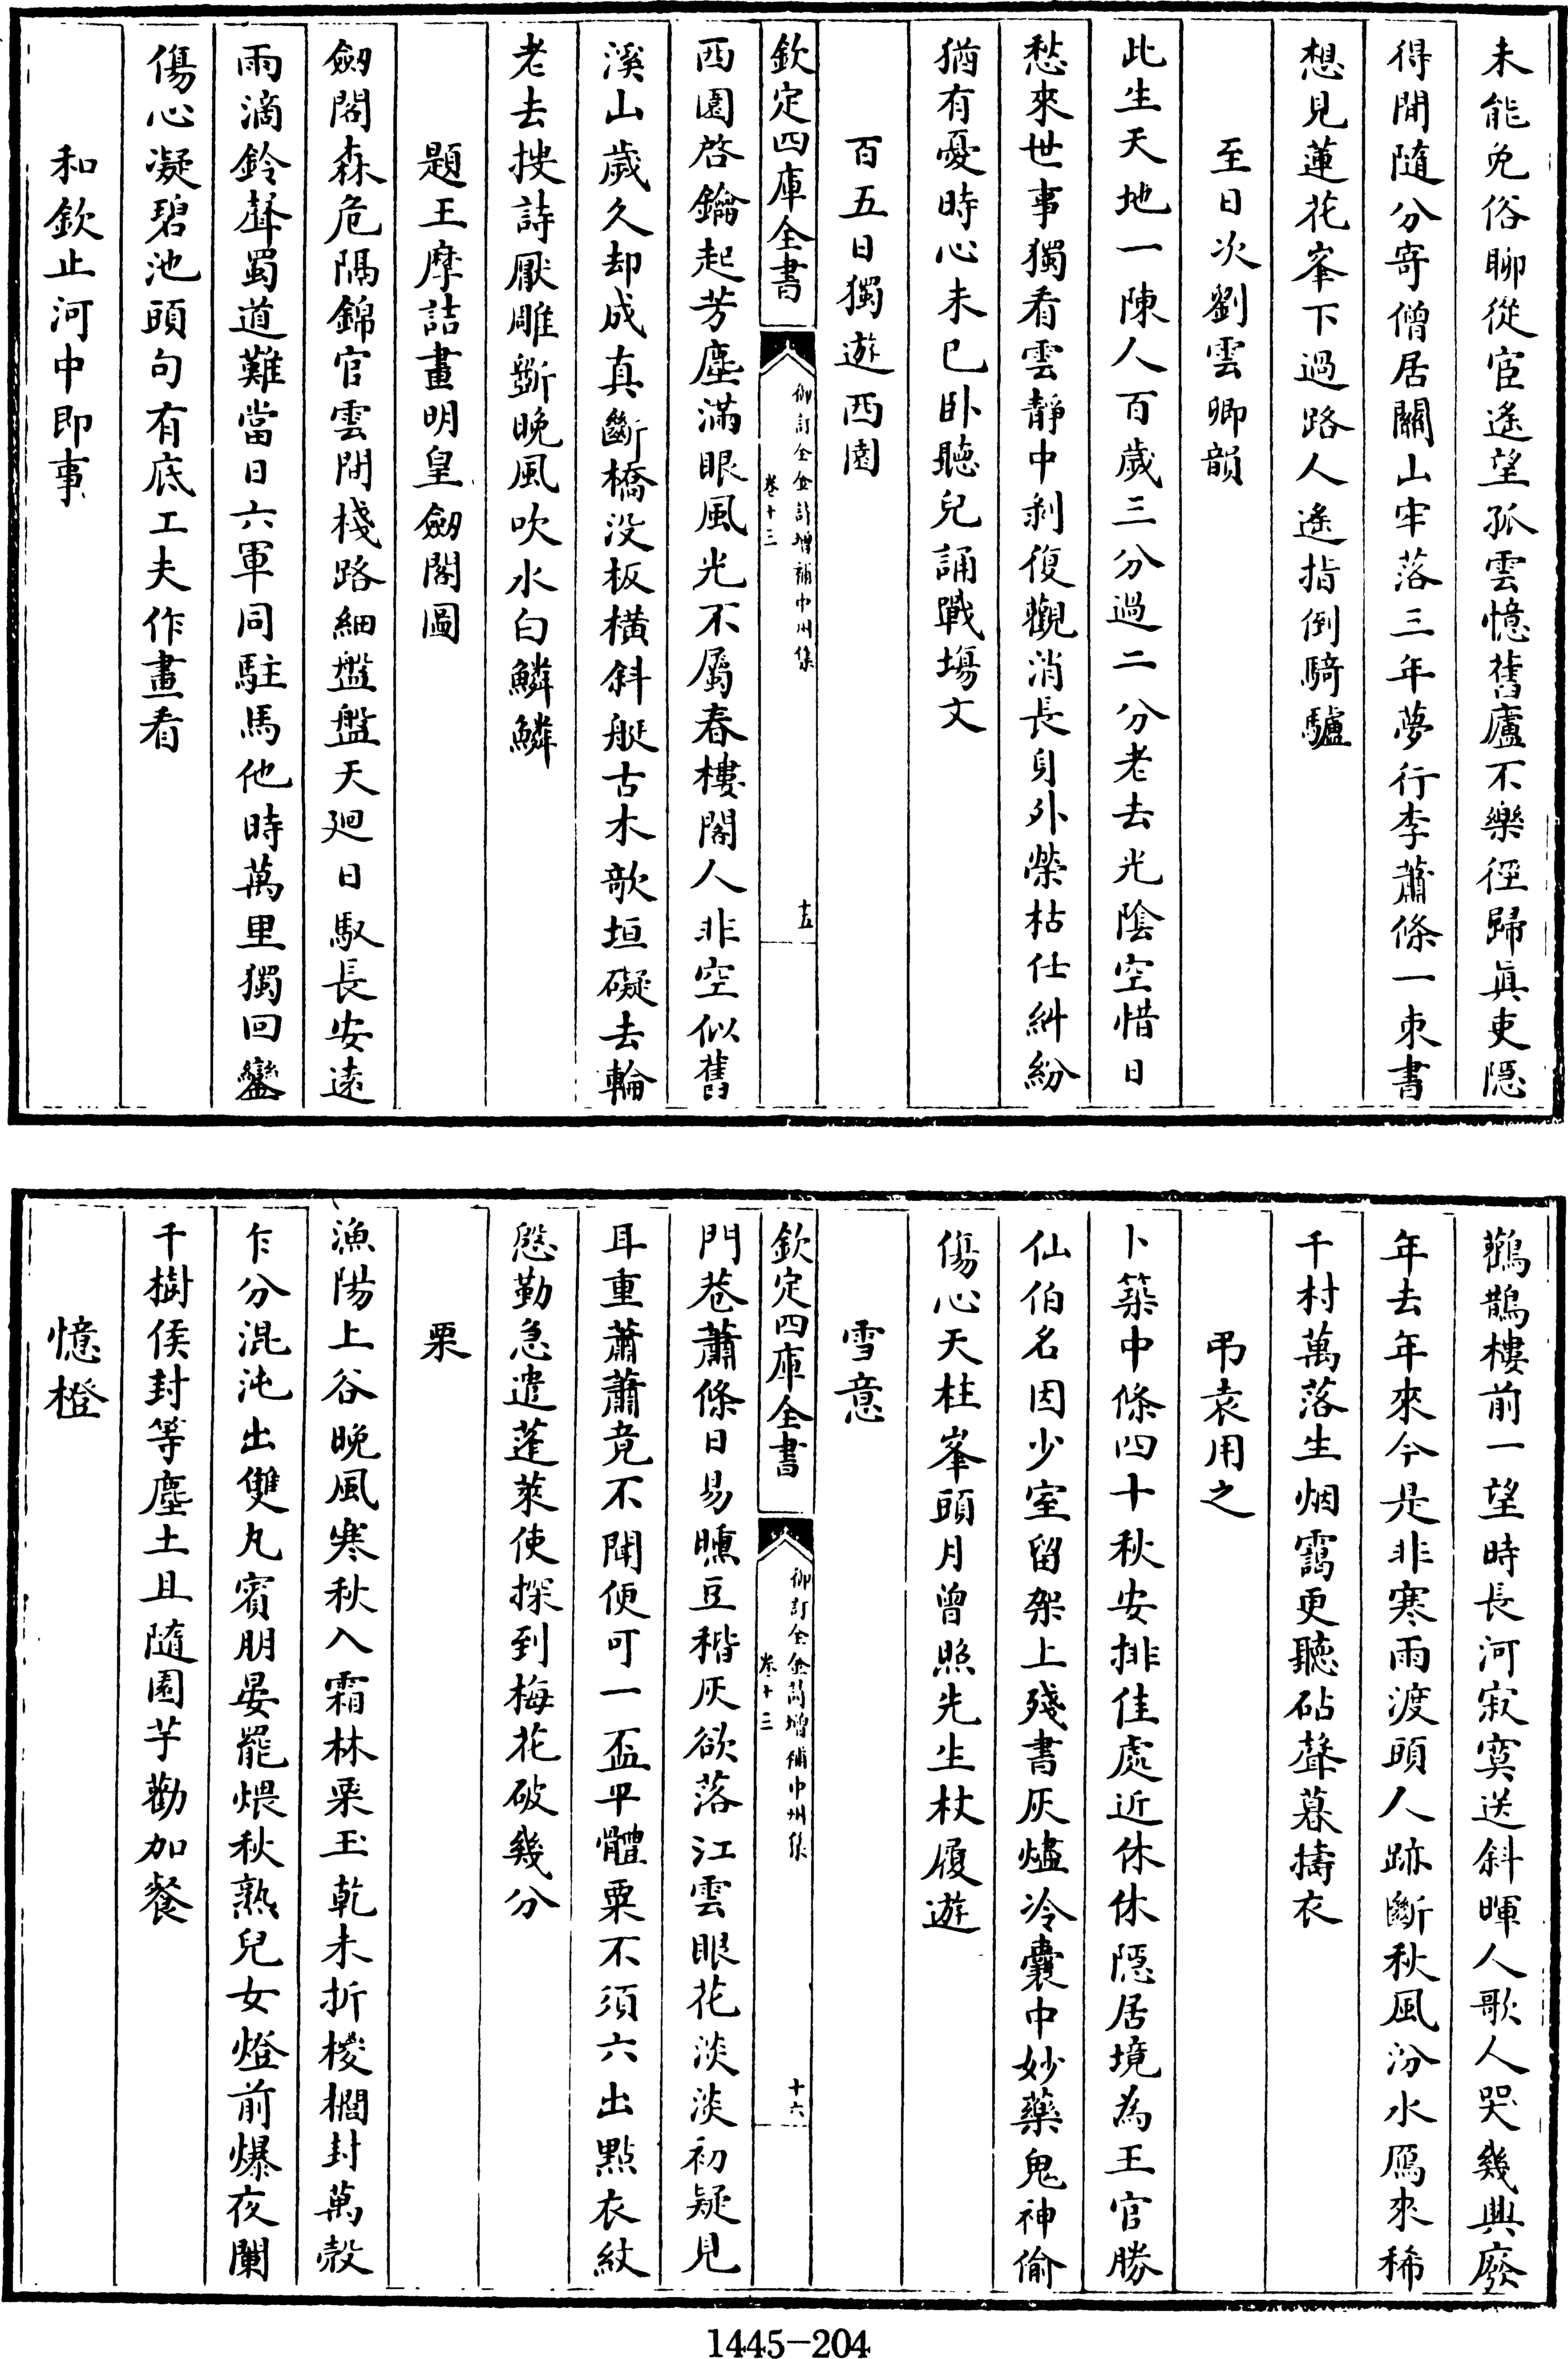 未能免俗聊從宦遙望孤雲憶舊廬不樂徑歸真吏隱
得閒隨分寄僧居關山牢落三年夢行李蕭條一束書
想見蓮花峯下過路人遙指倒騎驢
至日次劉雲卿韻
此生天地一陳人百歲三分過二分老去光陰空惜日
愁來世事獨看雲靜中剥復觀消長身外榮枯任糾紛
猶有憂時心未已卧聽兒誦戰塲文
百五日獨遊西園
欽定四庫全書
御訂全金詩增補中州集
卷十三
十五
西園啓鑰起芳塵滿眼風光不屬春樓閣人非空似舊
溪山歲久却成真斷橋没板橫斜艇古木欹垣礙去輪
老去搜詩厭雕斵晚風吹水白鱗鱗
題王摩詰畫明皇劒閣圖
劒閣森危隔錦官雲間棧路細盤盤天廻日馭長安遠
雨滴鈴聲蜀道難當日六軍同駐馬他時萬里獨回鑾
傷心凝碧池頭句有底工夫作畫看
和欽止河中即事
鸛鵲樓前一望時長河寂寞送斜暉人歌人哭幾興廢
年去年來今是非寒雨渡頭人跡斷秋風汾水鴈來稀
千村萬落生烟靄更聽砧聲暮擣衣
弔袁用之
卜築中條四十秋安排佳處近休休隱居境為王官勝
仙伯名因少室留架上殘書灰燼冷囊中妙藥鬼神偷
傷心天柱峯頭月曾照先生杖履遊
雪意
欽定四庫全書
御訂全金詩增補中州集
卷十三
十六
門巷蕭條日易曛豆稭灰欲落江雲眼花淡淡初疑見
耳重蕭蕭竟不聞便可一盃平體粟不須六出點衣紋
慇勤急遣蓬萊使探到梅花破幾分
栗
漁陽上谷晚風寒秋入霜林栗玉乾未折椶櫚封萬殼
乍分混沌出雙丸賓朋晏罷煨秋熟兒女燈前爆夜闌
千樹侯封等塵土且隨園芋勸加餐
憶橙
1445-204